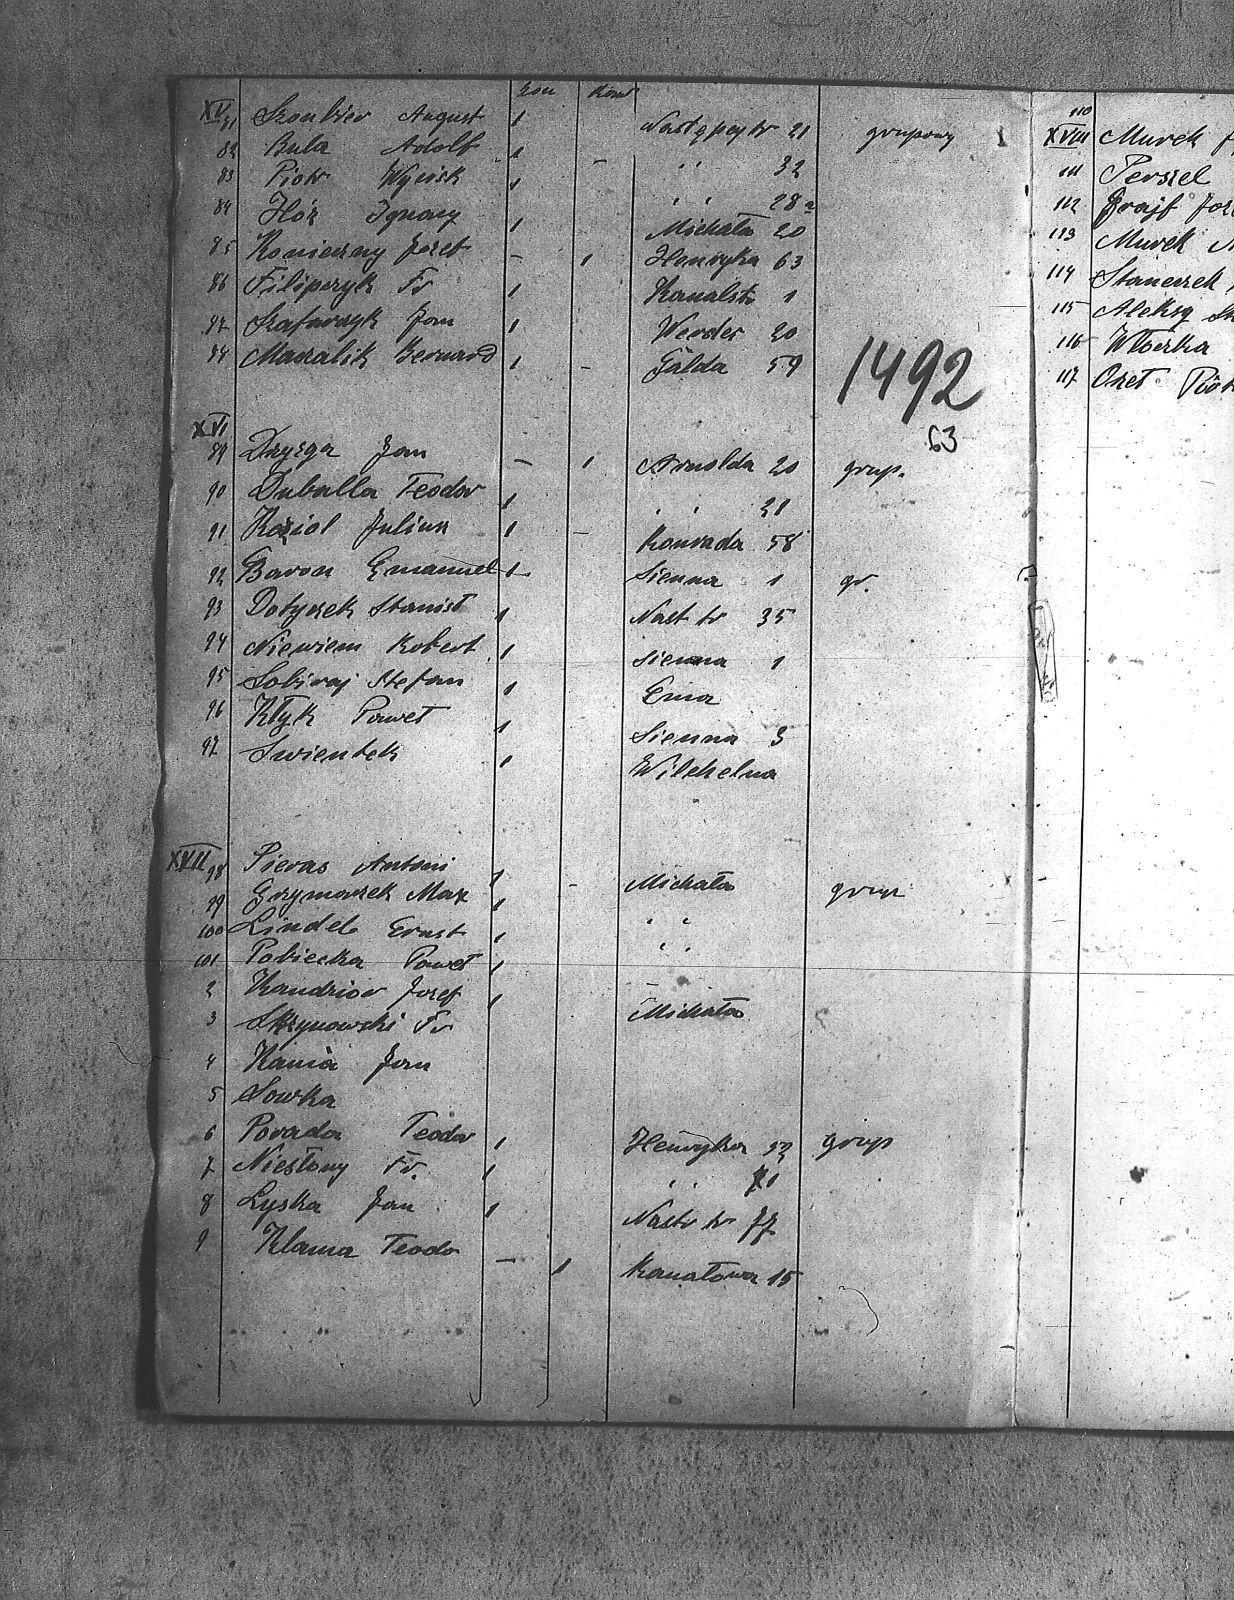 XV
81 Skoubier August 1 Następcy tr 21 grupowy
82 Bula Adolf 1 - " 32
83 Piotr Wycisk 1 " 28a
84 Hór Ignacy 1 Michała 20
85 Konieczny Josef - 1 Henryka 63
86 Filipczyk Fr 1 Kanalstr 1
87 Szafarczyk Jan 1 Werder 20
88 Mazalik Bernard 1 - Falda 59
1492
63
XVI
89 Dryzga Jan - 1 Arnolda 20 grup.
90 Duballa Teodor 1 " 21
91 Koziol Juliusz 1 - Konrada 58
92 Baron Emanuel 1 Sienna 1 gr.
93 Dotyszek Stanisł 1 Nast tr 35
94 Niewiem Robert 1 Sienna 1
95 Sobiraj Stefan 1 Ema
96 Kłyk Paweł 1 Sienna 3
97 Swientek 1 Wilhelma
XVII
98 Pieras Antoni 1 - Michała grup
99 Grymowzek Max 1 " "
100 Lindel Ernst 1 " "
101 Pobiecka Paweł 1
2 Kandzior Josef 1 Michała
3 Skrzynowski Fr
4 Kania Jan
5 Sowka
6 Porada Teodor 1 Henryka 52 grup
7 Niesłony Fr. 1 " 71
8 Lyska Jan 1 Nastr tr 77
9 Klama Teodor - 1 Kanałowa 15
110
XVIII Murek
111 Perszel
112 Grajf
113 Murek
114 Stanczek
115 Aleksy
116 Włoczka
117 Oszet Piotr